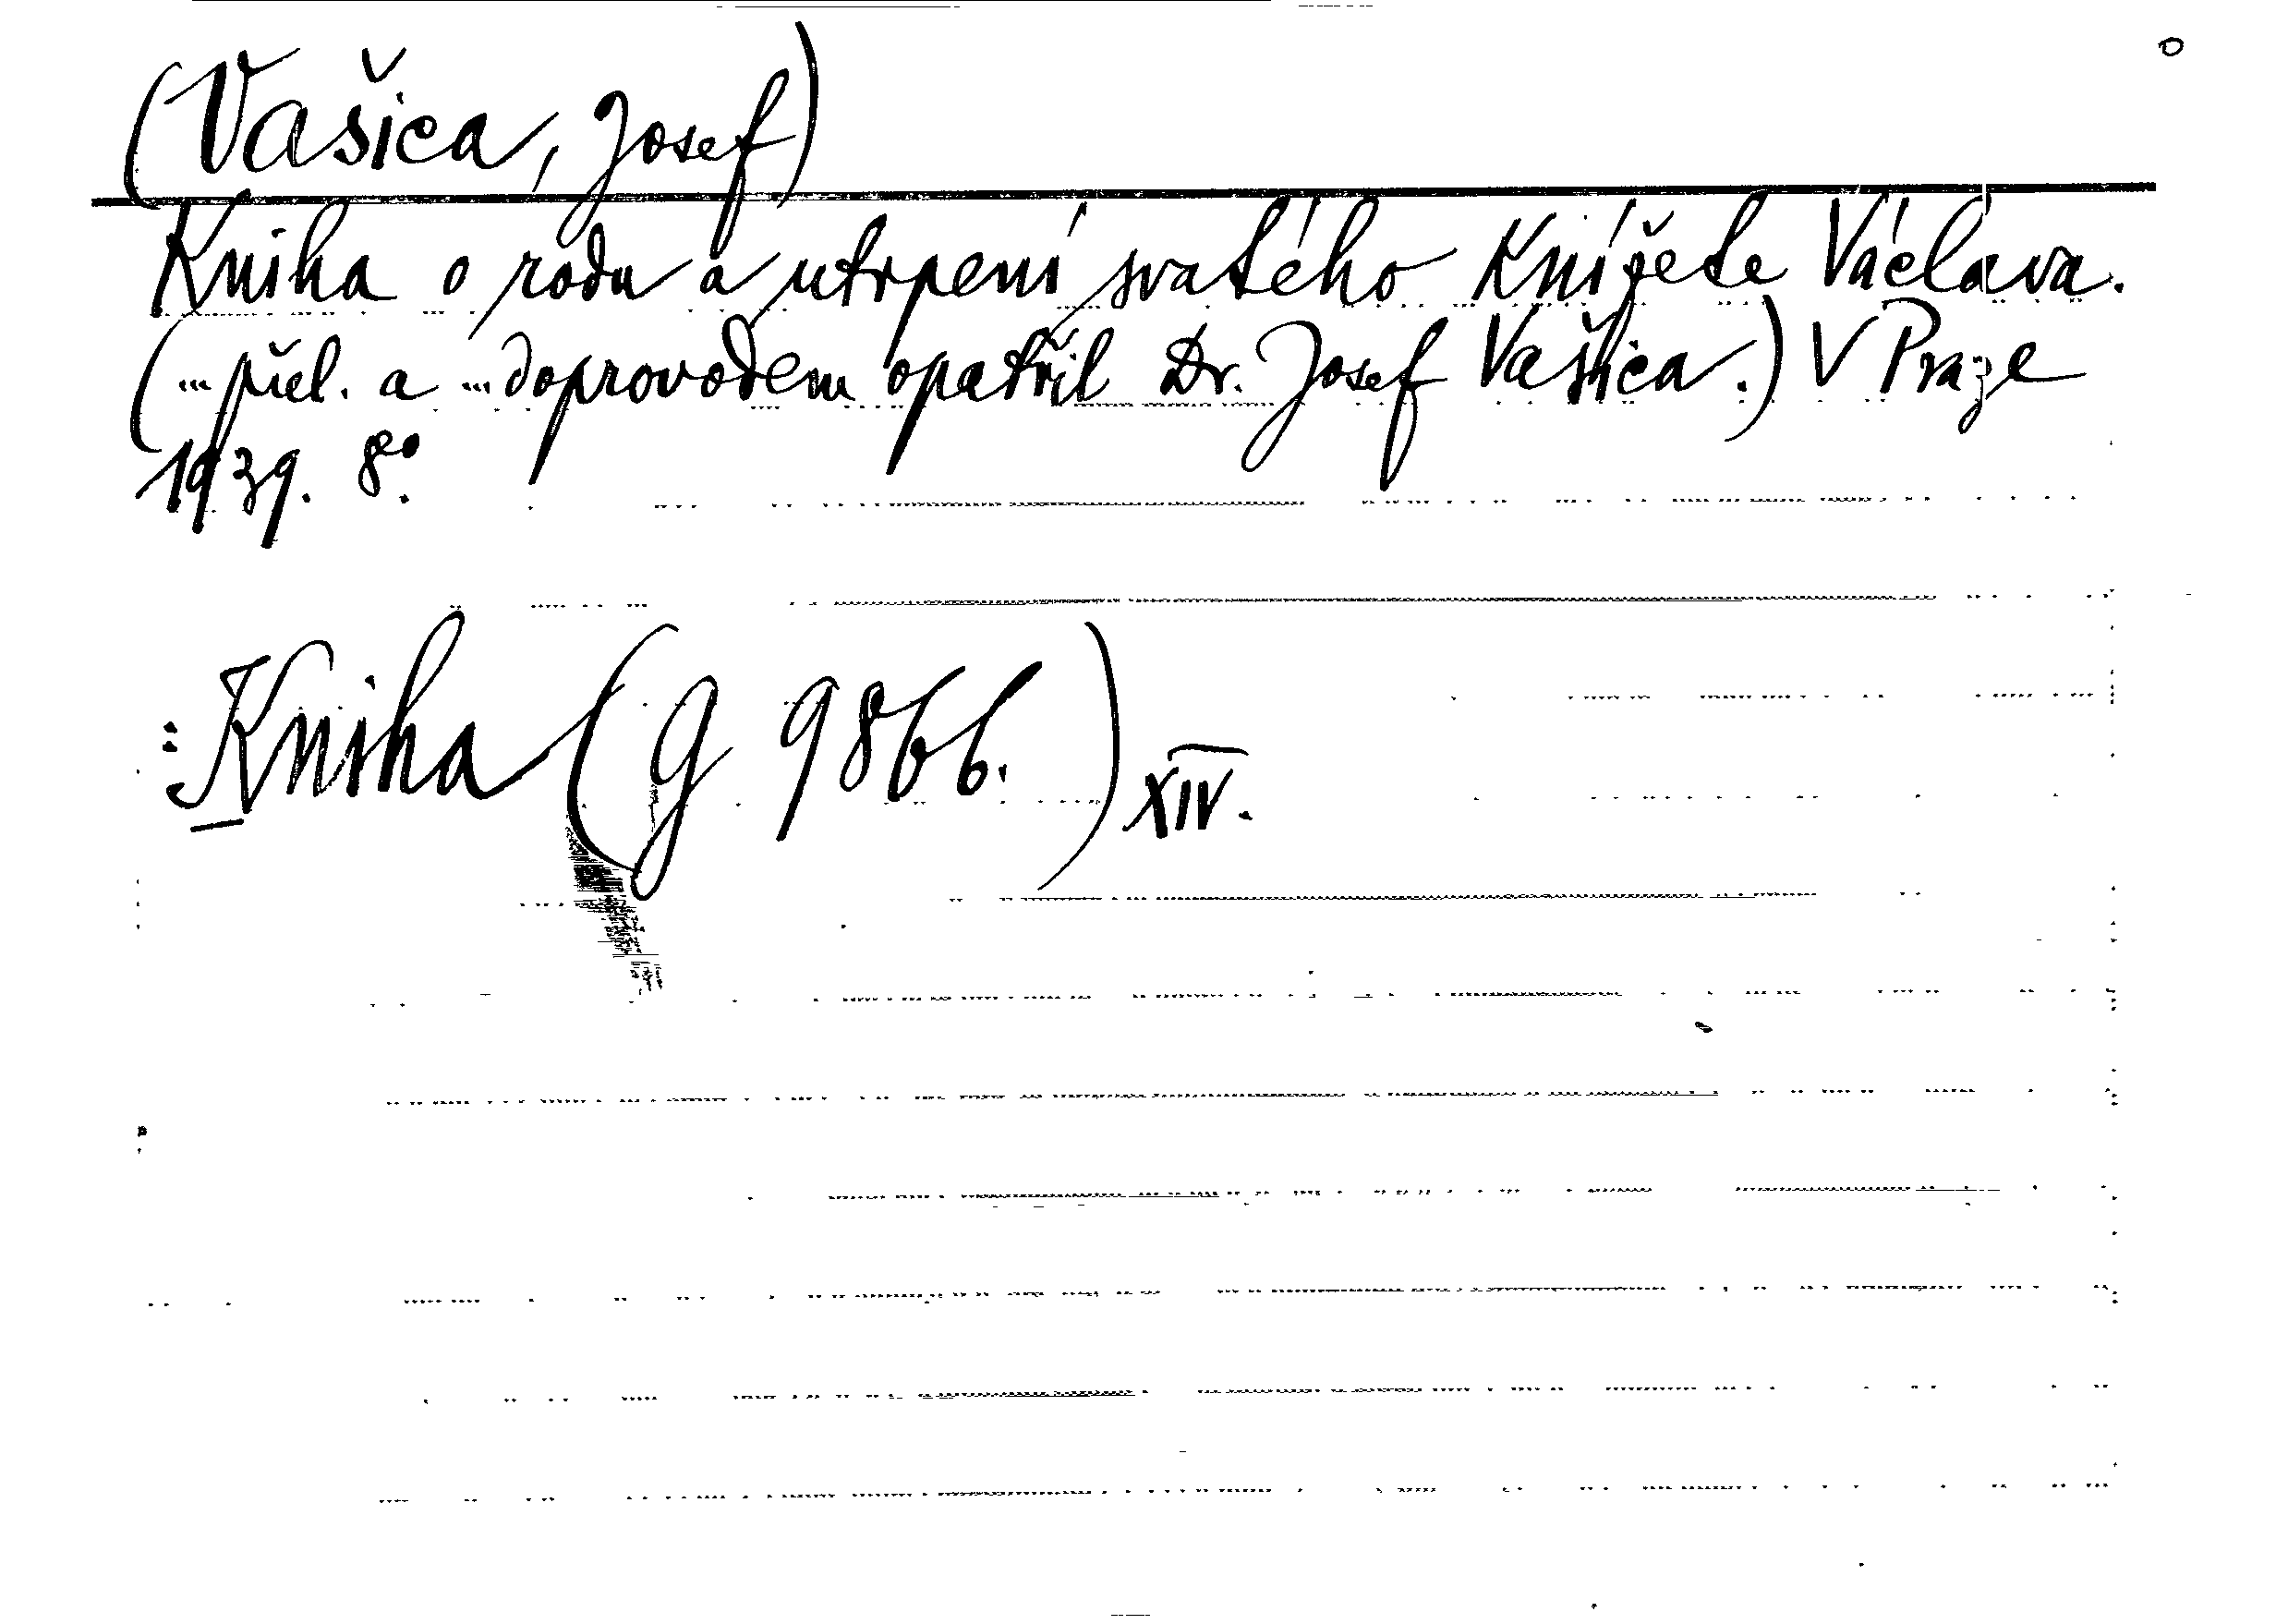 (Vašica, Josef)
Kniha o rodu a utrpení svatého Knížete Václava.
(... přel. a ... doprovodem opatřil Dr. Josef Vašica.) V Praze
1939. 8°.
: Kniha (g 9866.) XIV.